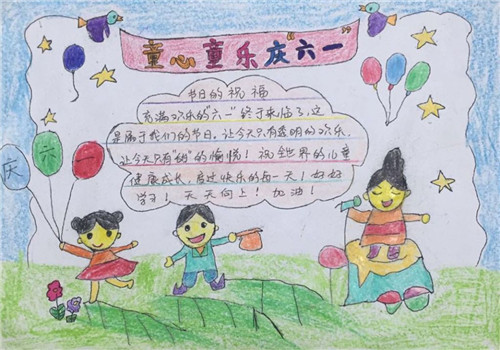 童心童乐庆"六一"
节日的祝福
充满欢乐的"六一"终于来临了,这
是属于我们的节日,让今天只有透明的欢乐,
让今天只有"纯"的愉悦!祝全世界的儿童
健康成长,度过快乐的每一天!好好
学习!天天向上!加油!
庆六一